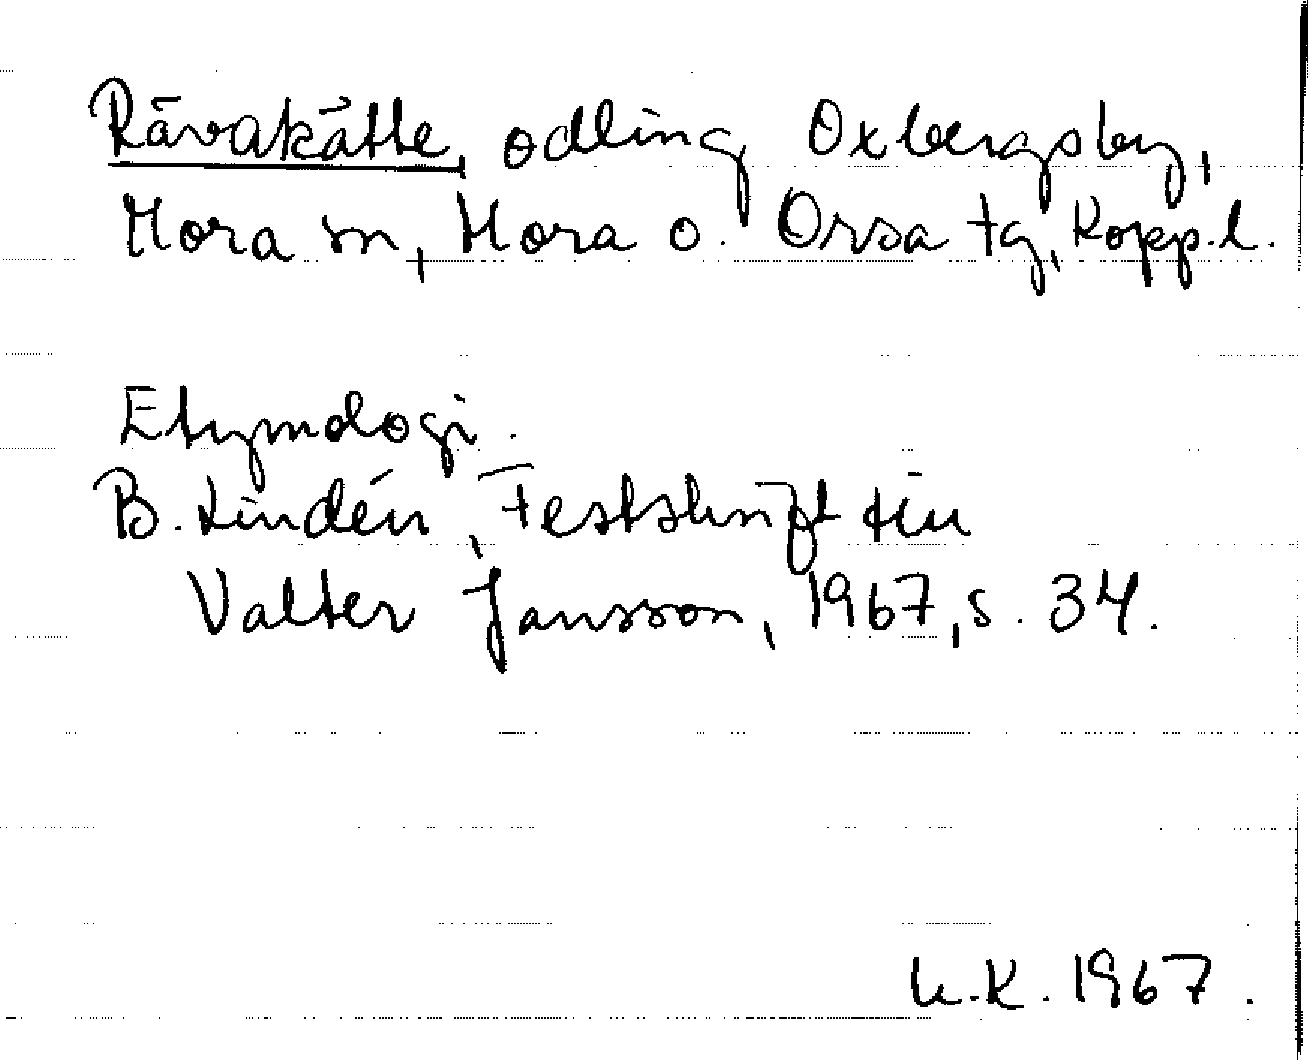 Rävakätte, odling Oxbergsby,
Mora sn, Mora o. Orsa tg, Kopp.l.
Etymologi.
B. Lindén, Festskrift till
Valter Jansson, 1967, s. 34.
K.K. 1967.